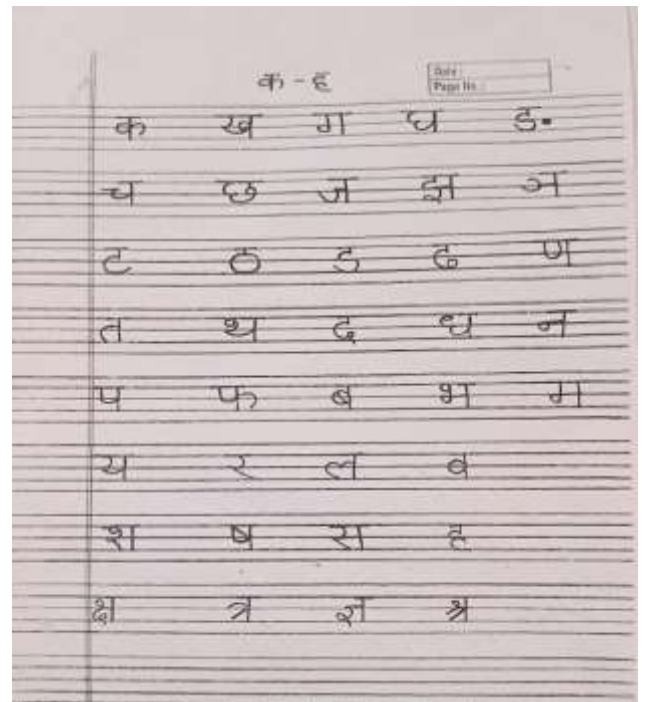 क - ह
Date :
Page No. :
क ख ग घ ङ
च छ ज झ ञ
ट ठ ड ढ ण
त थ द ध न
प फ ब भ म
य र ल व
श ष स ह
क्ष त्र ज्ञ श्र